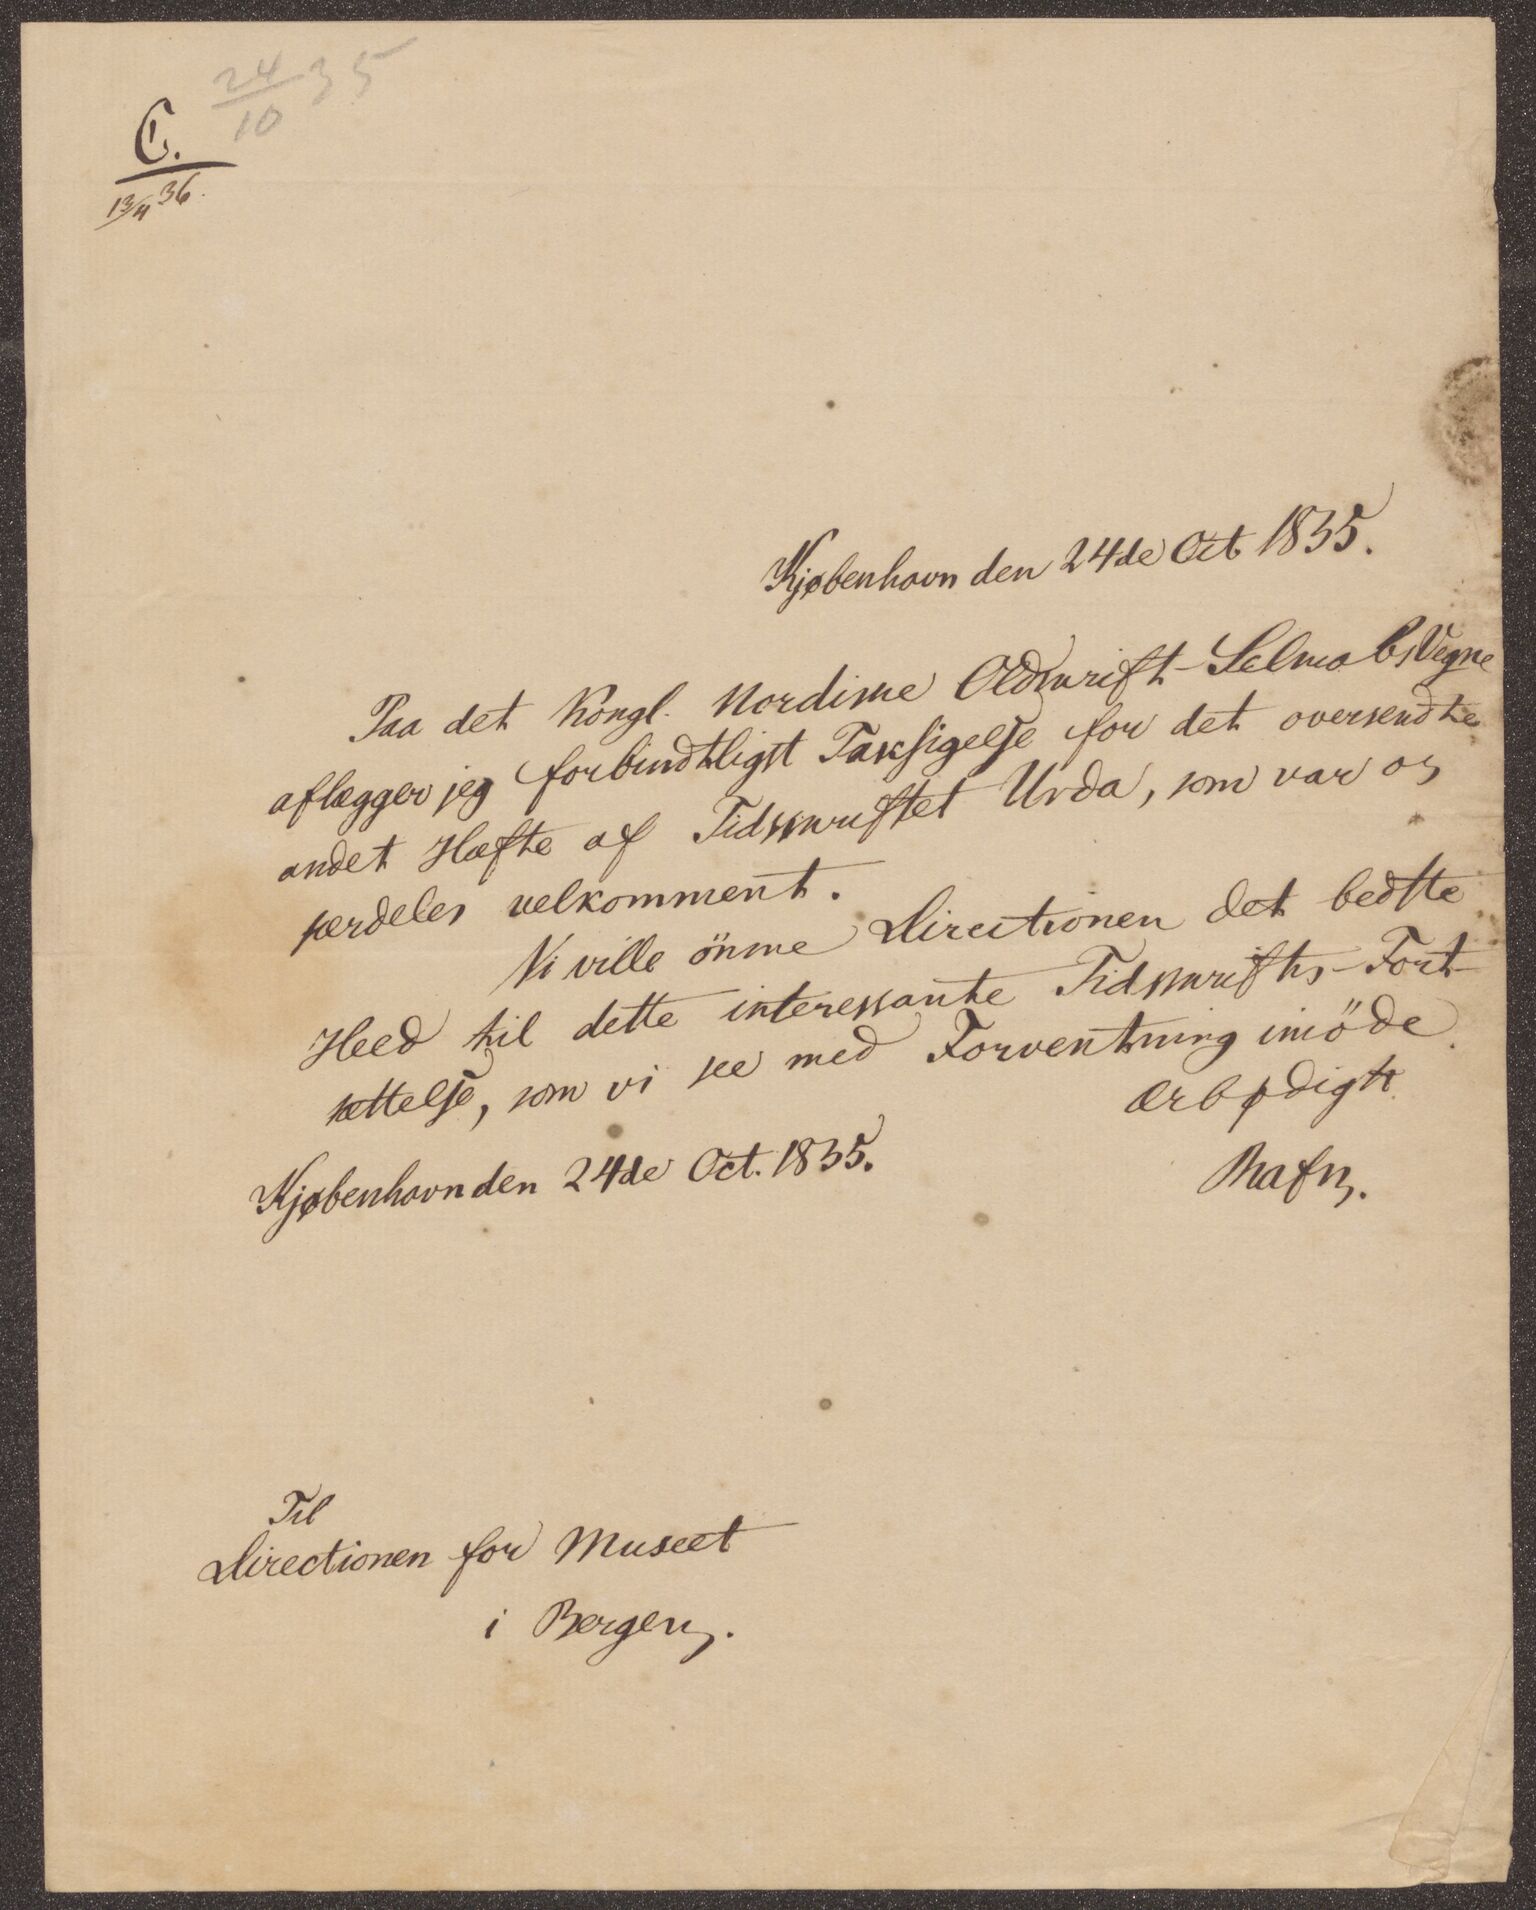 24/10 35
C.
13/4 36.
Kjøbenhavn den 24de Oct 1835.
Paa det Kongl. Nordiske Oldskrift-Selskabs Vegne
aflægger jeg forbindtligst Taksigelse for det oversendte
andet Hæfte af Tidsskriftet Urda, som var os
særdeles velkomment.
Vi ville önske Directionen det bedste
Heed til dette interessante Tidsskrifts-Fort-
sættelse, som vi see med Forventning imöde.
ærbødigst
Kjøbenhavn den 24de Oct. 1835.
Rafn.
Til
Directionen for Museet
i Bergen.